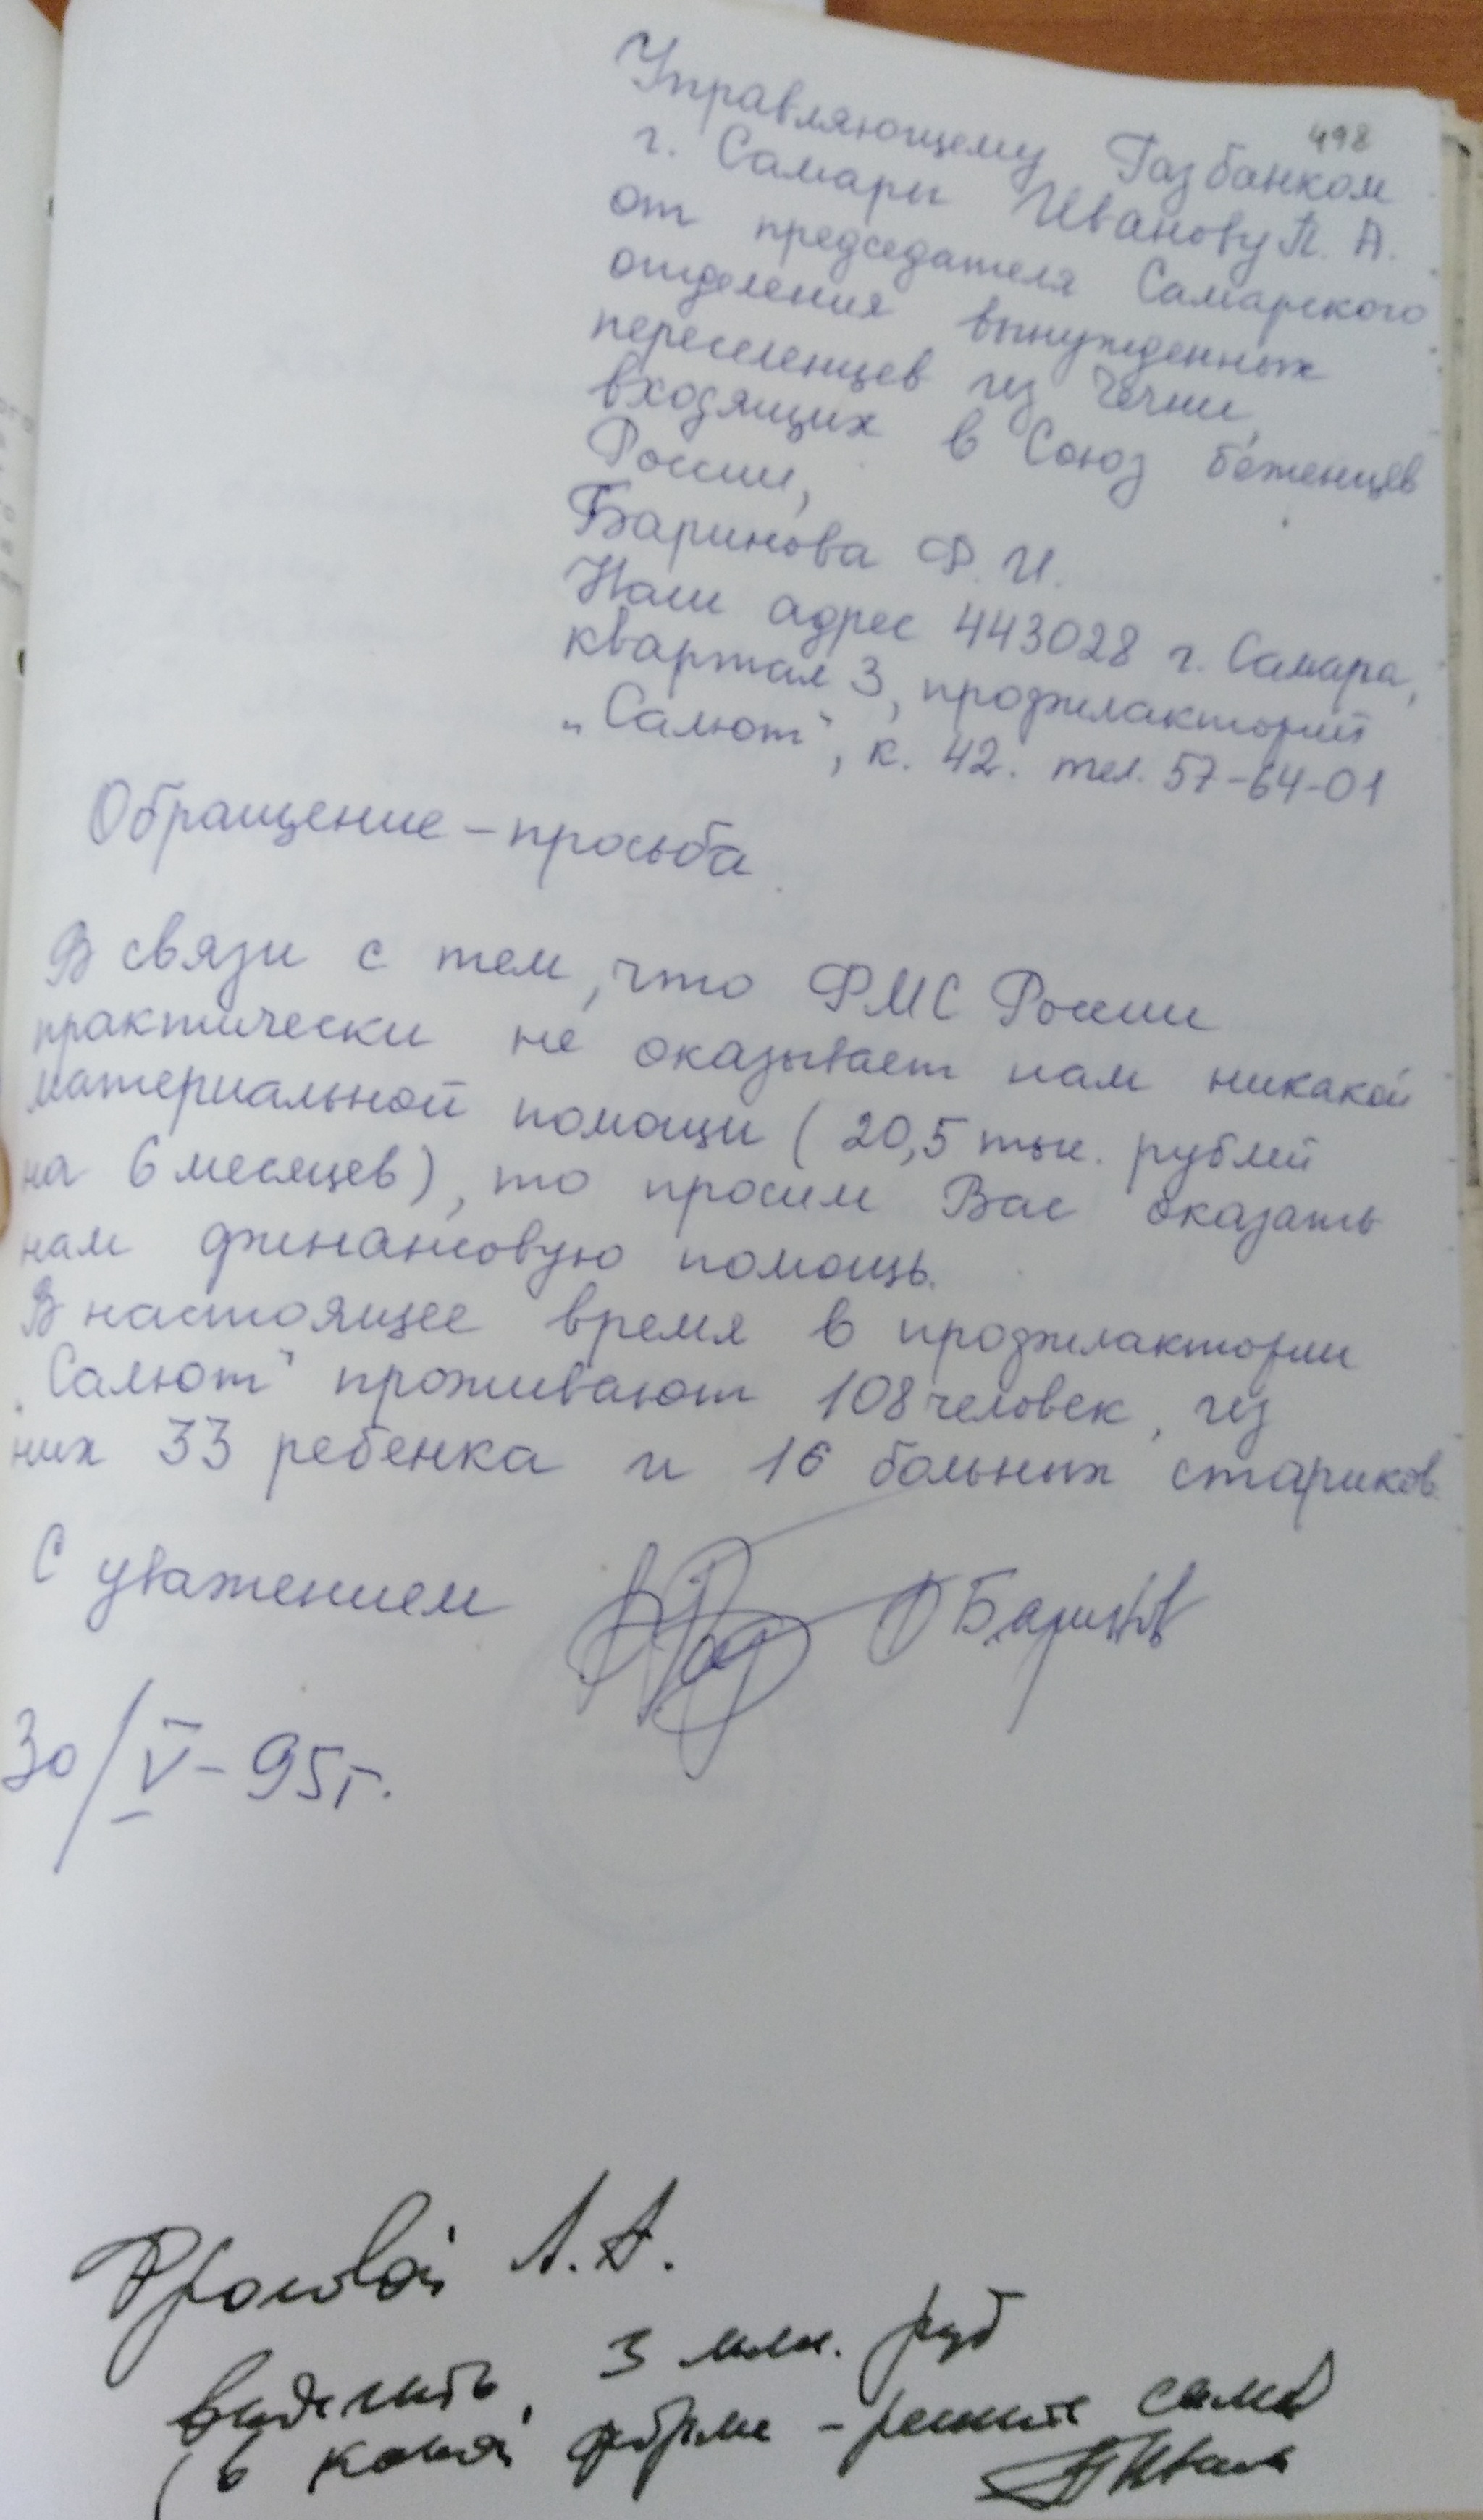 498
Управляющему Газбанком
г. Самары Иванову П. А.
от председателя Самарского
отделения вынужденных
переселенцев из Чечни,
входящих в Союз беженцев
России,
Баринова Ф. И.
Наш адрес 443028 г. Самара,
квартал 3, профилакторий
„Салют", к. 42. тел. 57-64-01
Обращение - просьба.
В связи с тем, что ФМС России
практически не оказывает нам никакой
материальной помощи (20,5 тыс. рублей
на 6 месяцев), то просим Вас оказать
нам финансовую помощь.
В настоящее время в профилактории
„Салют" проживают 108 человек, из
них 33 ребенка и 16 больных стариков.
С уважением Ф Баринов
30/V - 95 г.
Фроловой Л. А.
выделить 3 млн. руб
(в какой форме - решите сами)